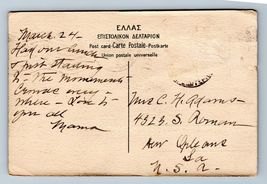 ΕΛΛΑΣ
ΕΠΙΣΤΟΛΙΚΟΝ ΔΕΛΤΑΡΙΟΝ
Post card-Carte Postale-Postkarte
Union postale universelle
March 24-
Had our lunch
& just starting
to - The Monuments
Crowds every-
where - Love to
you all
Mama
Mrs C. H. Adams-
4323 S. Roman
New Orleans
La
U. S. A-